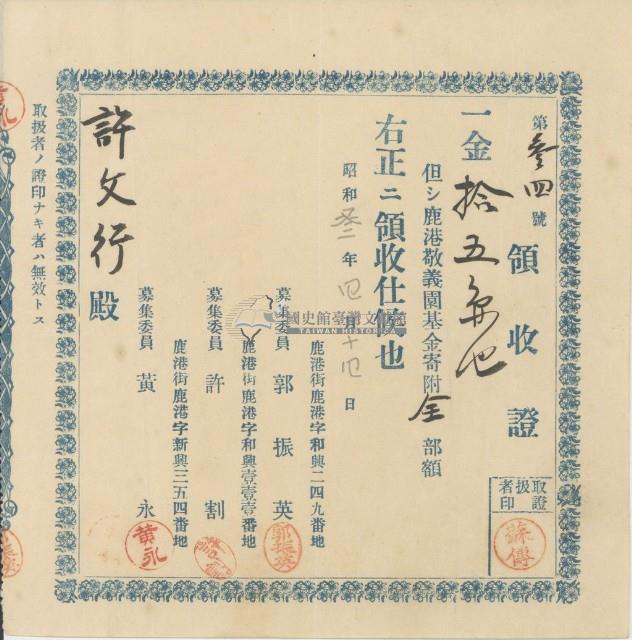 第參四號
領收證
一金拾五円也
但シ鹿港敬義園基金寄附全部額
右正ニ領收仕候也
昭和 年四月十四日
鹿港街鹿港字和興二四九番地
募集委員 郭振英
鹿港街鹿港字和興壹壹壹番地
募集委員 許割
鹿港街鹿港字新興三五四番地
募集委員 黃永
許文行殿
取扱者證印
郭振英
黃永
取扱者ノ證印ナキ者ハ無效トス
國史館臺灣文獻館
TAIWAN HISTORICA